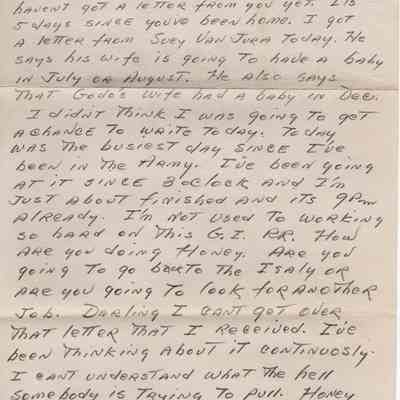 havent got a letter from you yet. Its
5 days since youve been home. I got
a letter from Suey Van Jura today. He
says his wife is going to have a baby
in July or August. He also says
that Godo's wife had a baby in Dec.
I didnt think I was going to get
a chance to write today. Today
was the busiest day since I've
been in the Army. I've been going
at it since 8 oclock and I'm
just about finished and its 9pm
already. I'm not used to working
so hard on this G.I. RR. How
are you doing Honey. Are you
going to go back to the Isaly or
are you going to look for another
job. Darling I cant get over
that letter that I received. I've
been thinking about it continuosly.
I cant understand what the hell
somebody is trying to pull. Honey